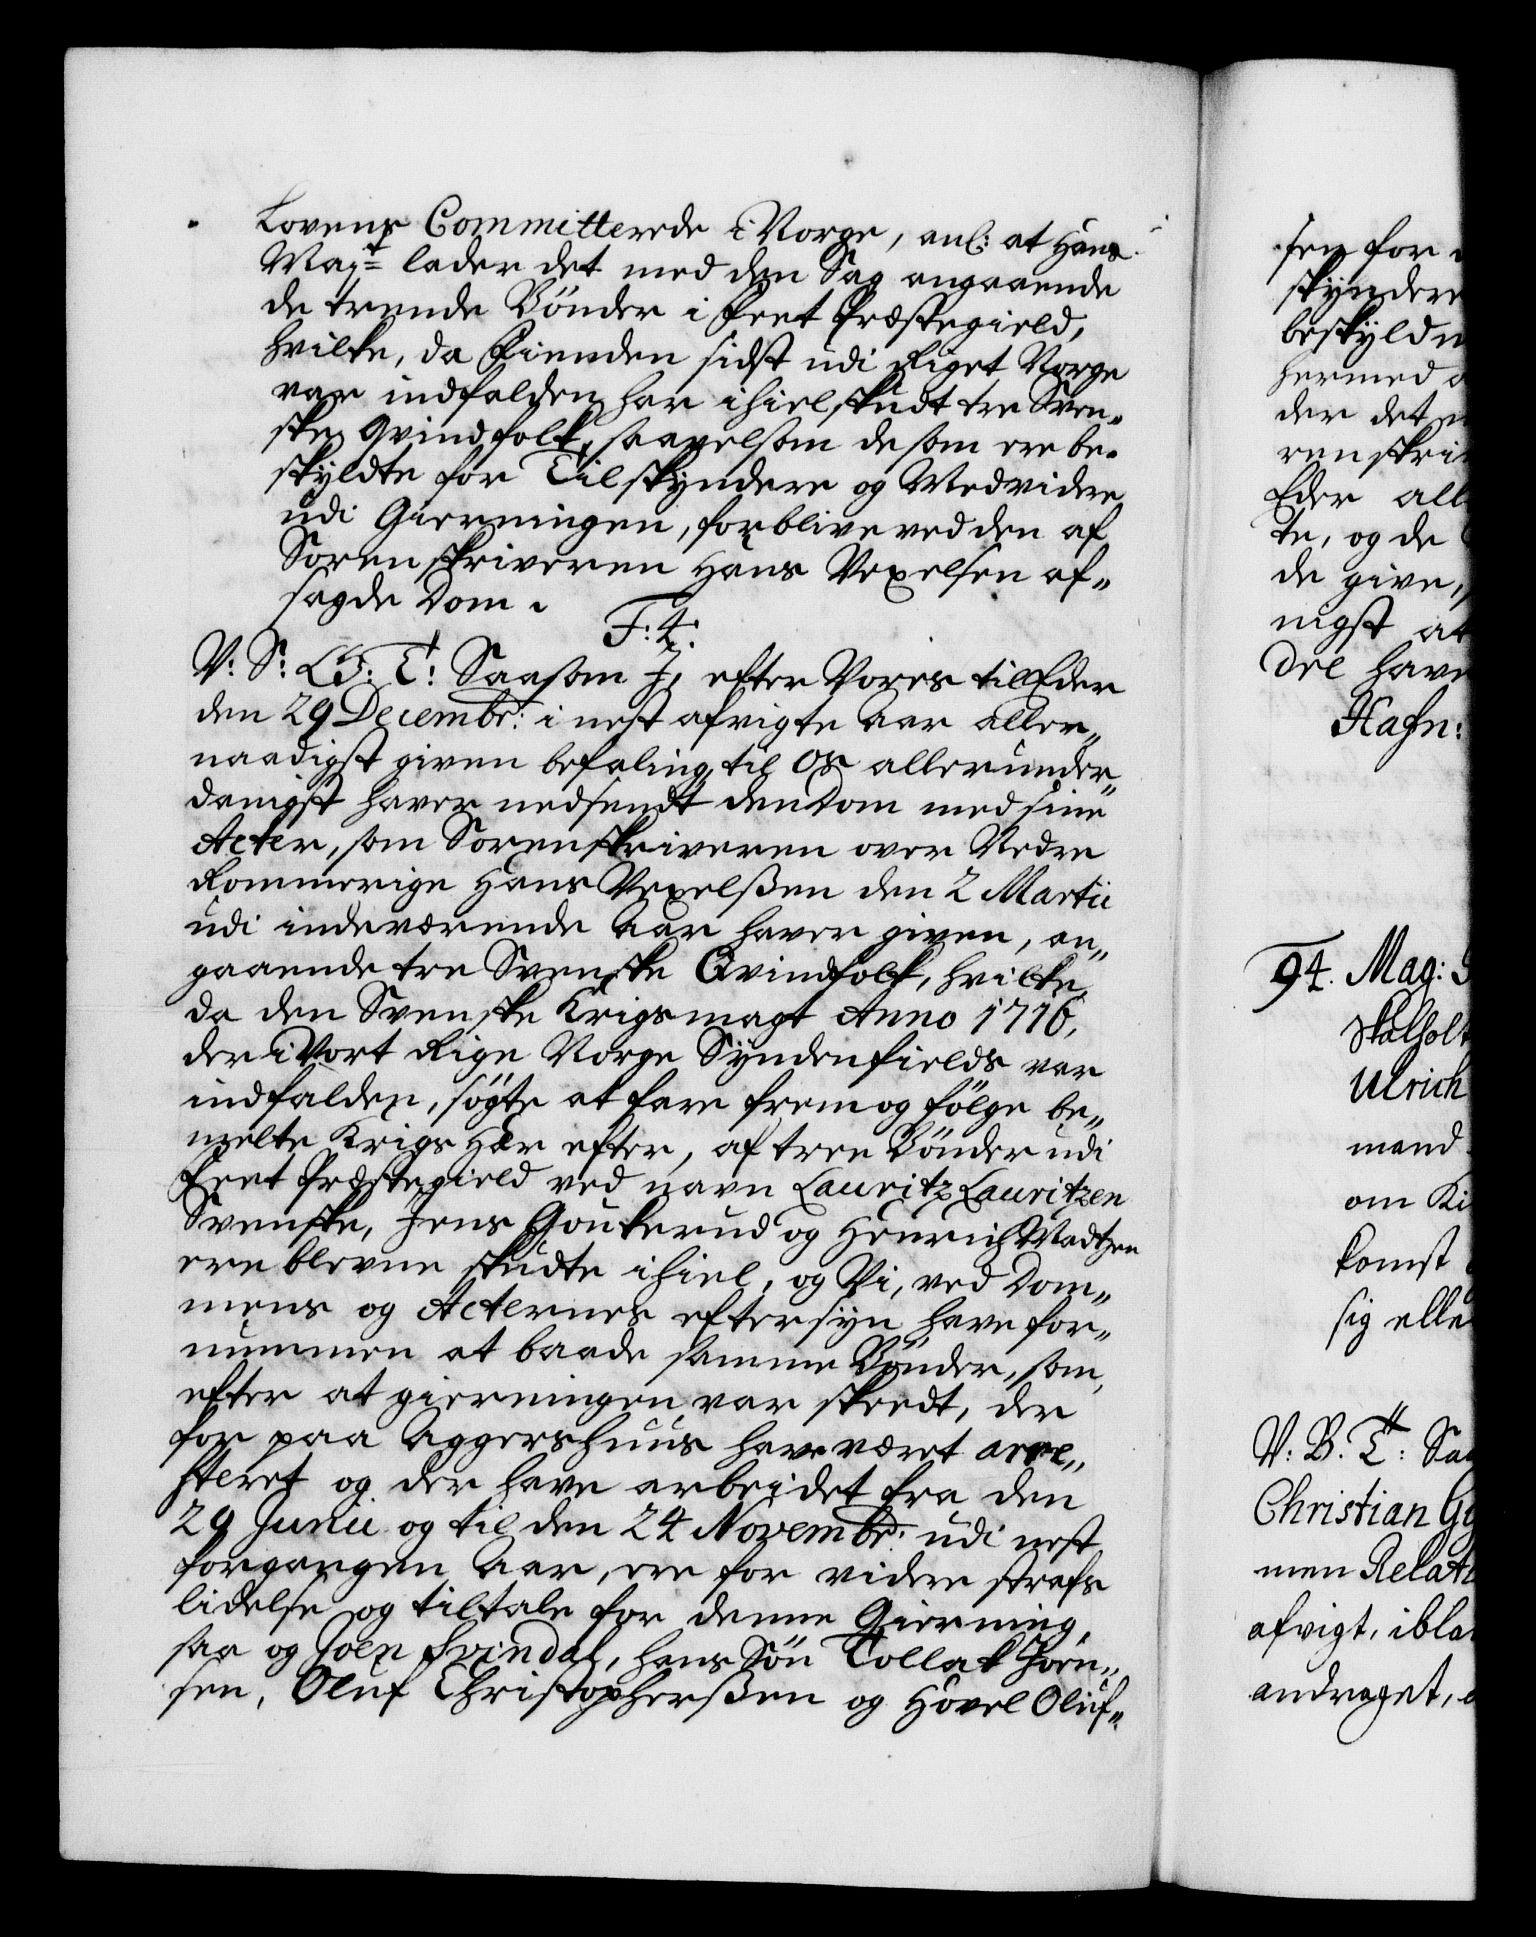 Lovens Committerede i Norge, anl: at Hans
Mayt= lader det med den Sag angaaende
de trende Bönder i Feet Præstegield,
hvilke, da Fienden sidst udi Riget Norge
var indfalden har ihielskudt tre Sven„
ske Qvindfolk, saavelsom de som ere be„
skyldte for Tilskyndere og Medvidere
udi Gierningen, forblive ved den af
Sorenskriveren Hans Vexelsen af„
sagde Dom.
F: 4:
V: S: G: T: Saasom I, efter Vores til Eder
den 29 Decembr: i nest afvigte Aar aller„
naadigst given befaling, til Os allerunder„
danigst haver nedsendt den Dom med sine
Acter, som Sorenskriveren over Nedre
Rommerige Hans Vexelßen den 2 Martii
udi indeværende Aar haver given, an„
gaaende tre Svenske Qvindfolk, hvilke,
da den Svenske Krigsmagt Anno 1716,
der i Vort Rige Norge Syndenfields var
indfalden, søgte at fare frem og følge be„
melte Krigs Hær efter, af tree Bönder udi
Feet Præstegield ved navn Lauritz Lauritzen
Svenske, Jens Goukerud og Henrich Madtzen
ere blevne skudte ihiel, og Vi, ved Dom„
mens og Acternes eftersyn have for„
nummen at baade samme Bönder, som,
efter at gierningen var skeedt, der
for paa Aggershuus have været arre„
steret og der have arbeidet fra den
29 Junii og til den 24 Novembr: udi nest
forgangen Aar, ere for videre strafs
lidelse og tiltale for denne Gierning,
saa og Joen Svindal, hans Sön Tollak Joen„
sen, Oluf Christopherßen og Hovel Oluf„
sen for
skyndere
beskyldn
hermed
der det
renskri
Eder all
te, og de
de give,
nigst at
Del have
Hafn:
94. Mag:
Skalholt
Ulrich
mand
om Ki
komst
sig elle
V: B. T: Saa
Christian Gy
men Relati
afvigt, ibla
andraget,